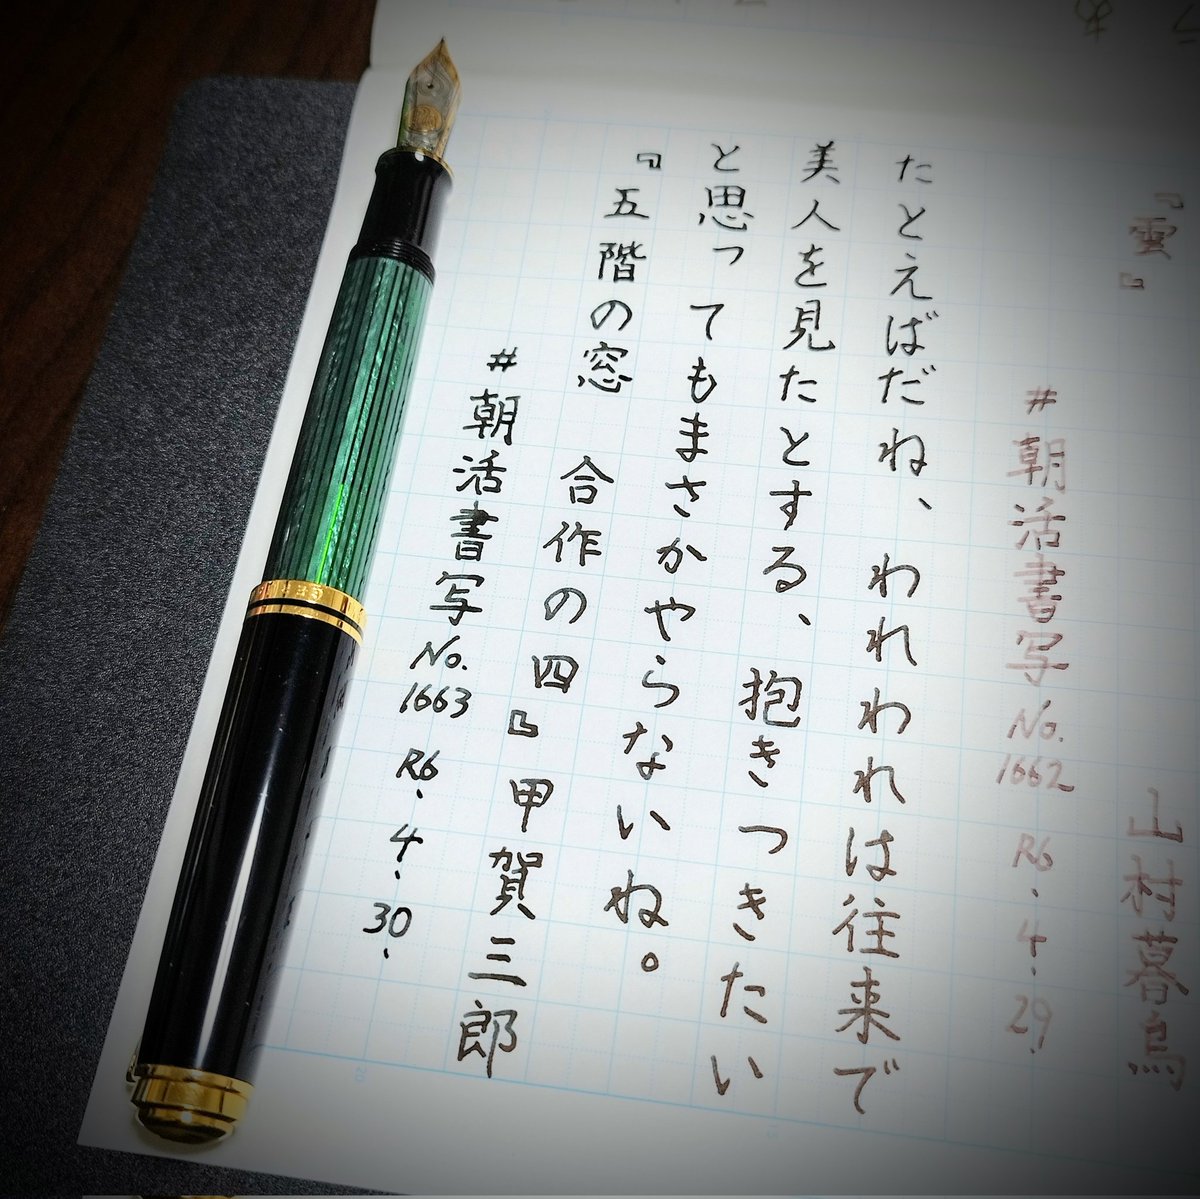 『雲』 山村暮鳥
#朝活書写 No. 1662 R6.4.29.
たとえばだね、われわれは往来で
美人を見たとする、抱きつきたい
と思ってもまさかやらないね。
『五階の窓 合作の四』甲賀三郎
#朝活書写 No. 1663 R6.4.30.